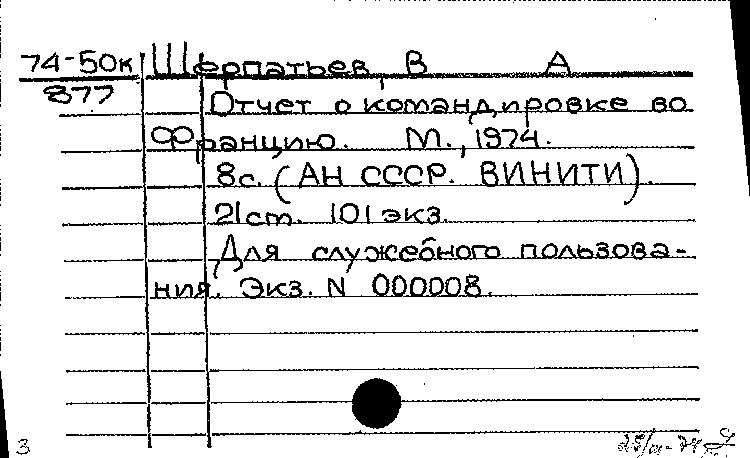 74-50к Шерпатьев, В А
877 Отчет о командировке во
Францию. М., 1974.
8с. (АН СССР. ВИНИТИ).
21см. 101 экз.
Для служебного пользова-
ния. Экз. N 000008.
3